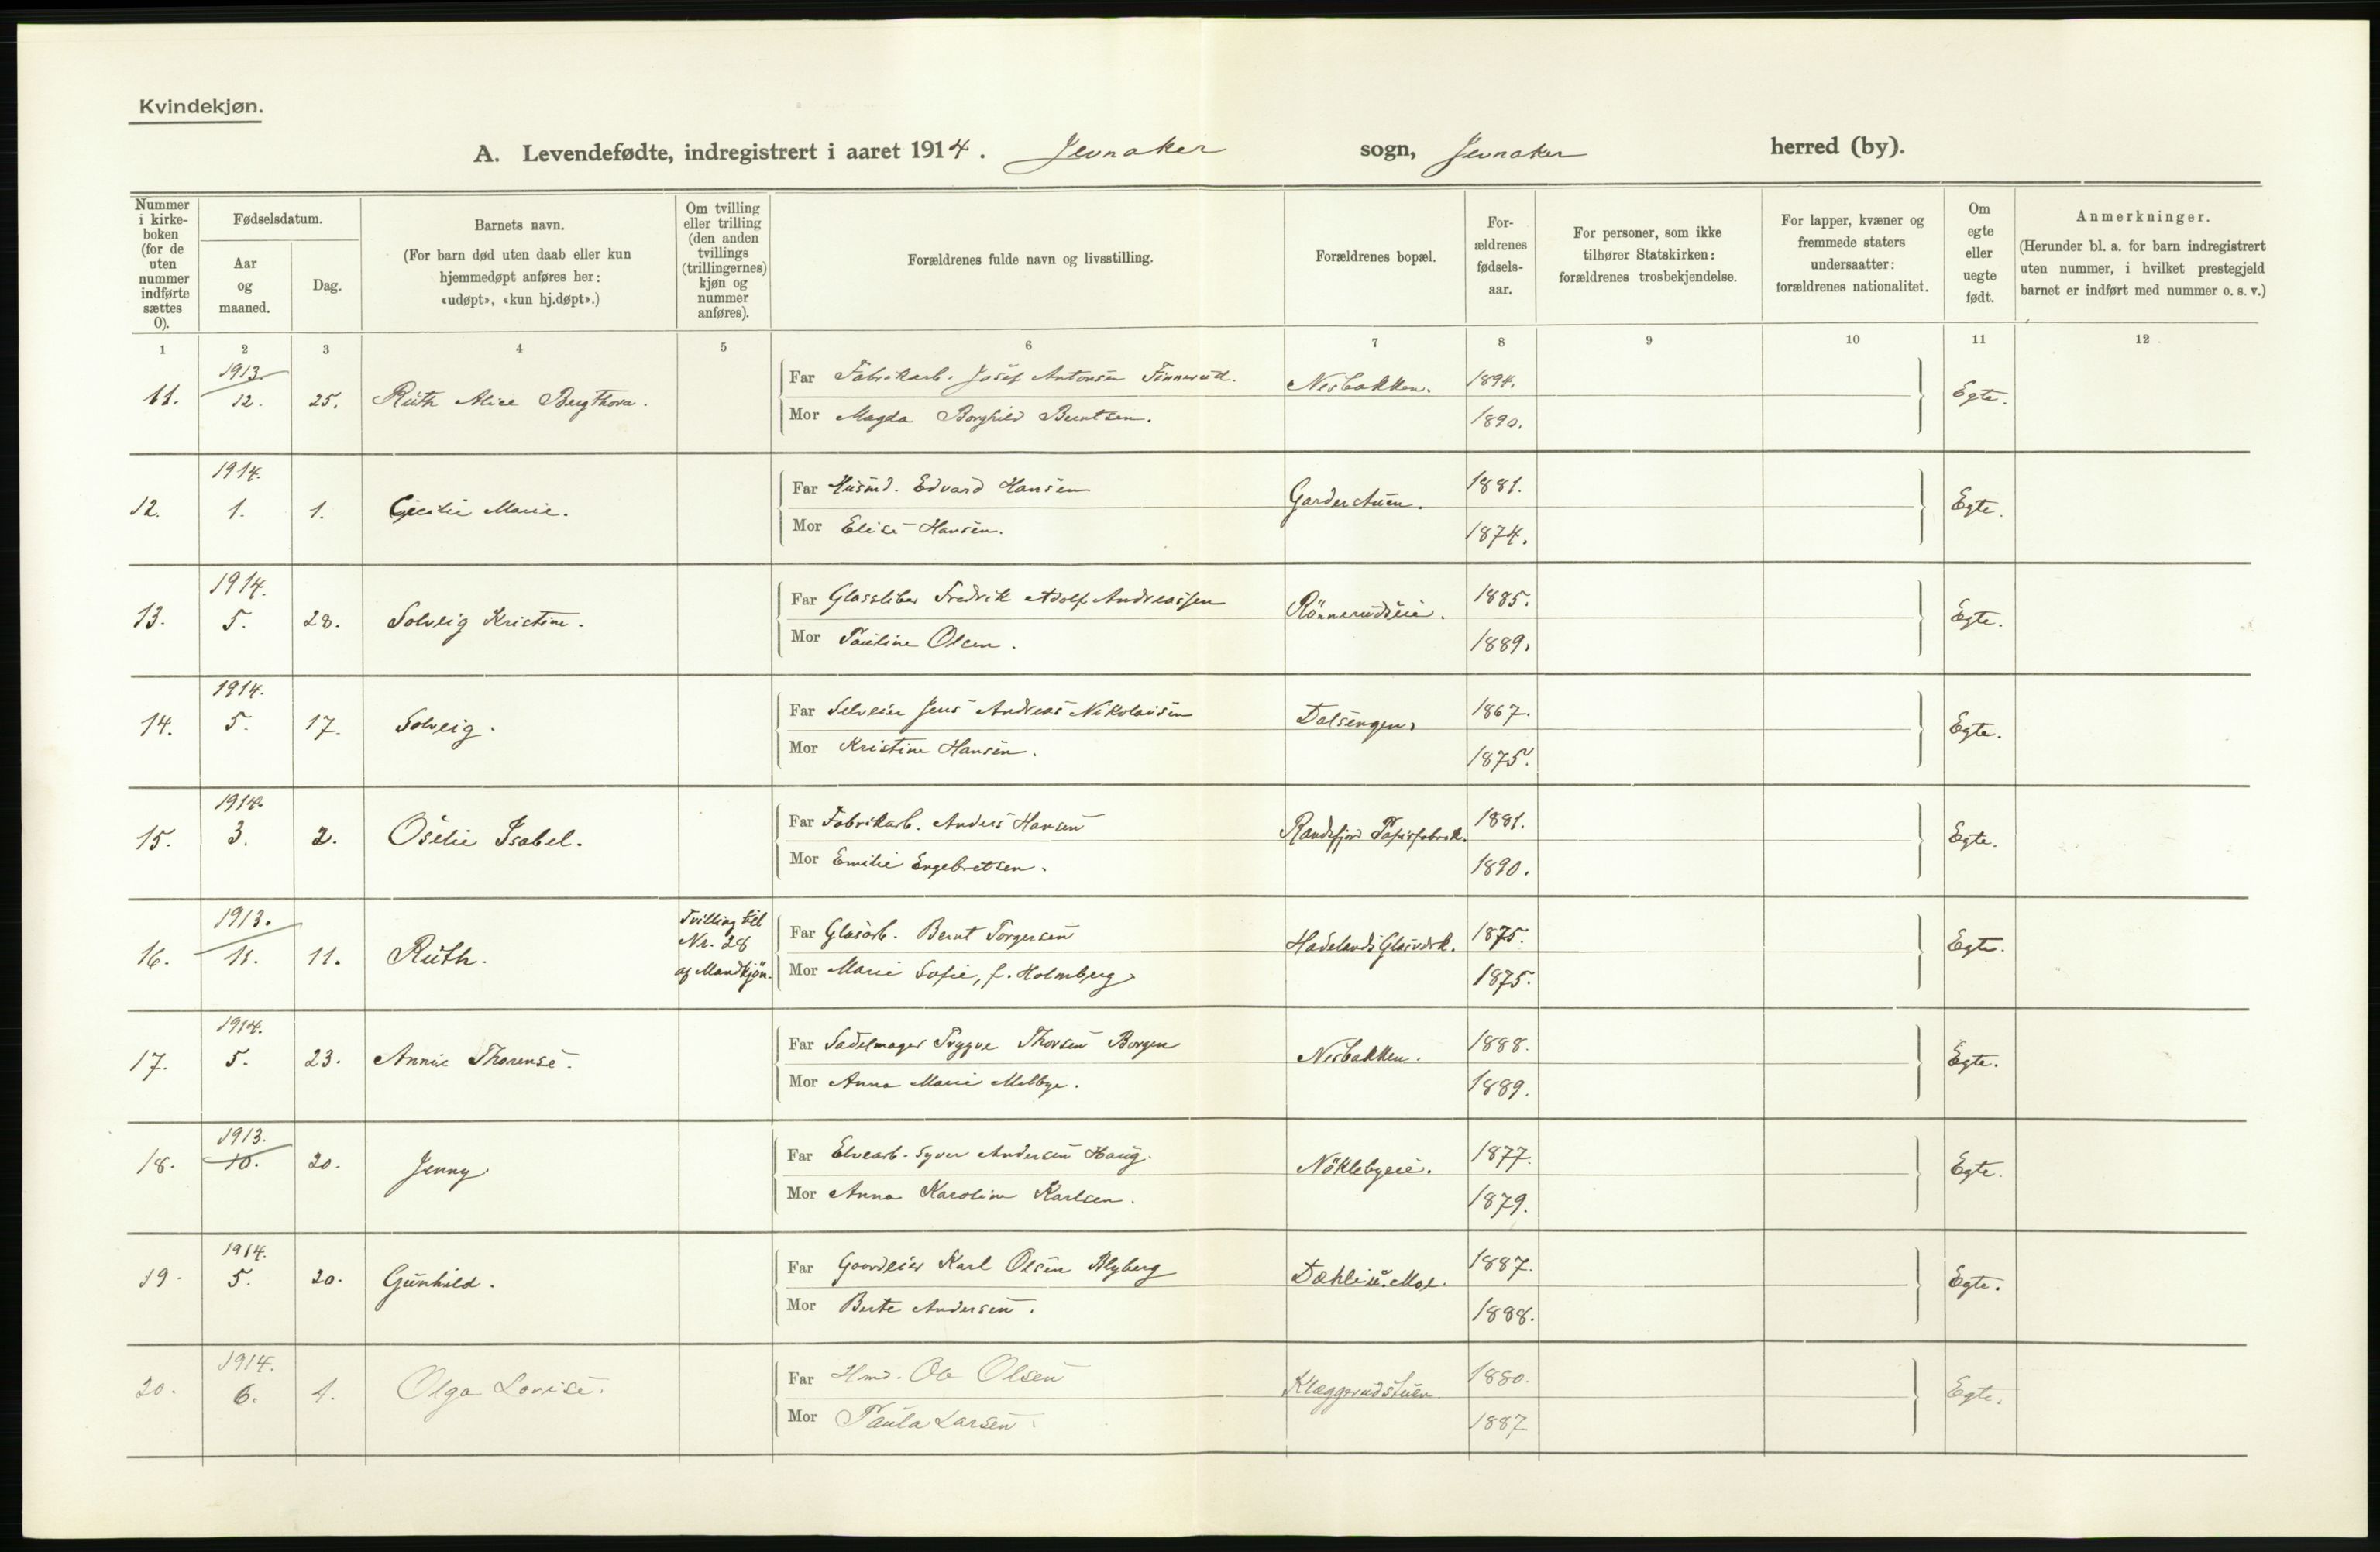 Kvindekjøn.
A. Levendefødte, indregistrert i aaret 1914. Jevnaker sogn, Jevnaker herred (by).
Nummer i kirke-boken (for de uten nummer indførte sættes 0).
Fødselsdatum.
Aar og maaned.
Dag.
Barnets navn.
(For barn død uten daab eller kun hjemmedøpt anføres her: «udøpt», «kun hj.døpt».)
Om tvilling eller trilling (den anden tvillings (trillingernes) kjøn og nummer anføres).
Forældrenes fulde navn og livsstilling.
Forældrenes bopæl.
For-ældrenes fødsels-aar.
For personer, som ikke tilhører Statskirken: forældrenes trosbekjendelse.
For lapper, kvæner og fremmede staters undersaatter: forældrenes nationalitet.
Om egte eller uegte født.
Anmerkninger.
(Herunder bl. a. for barn indregistrert uten nummer, i hvilket prestegjeld barnet er indført med nummer o. s. v.)
1 2 3 4 5 6 7 8 9 10 11 12
11. 1913. 12. 25. Ruth Alice Bergthora. Far Fabrikarb. Josef Antonsen Finnerud. Nesbakken. 1894. Egte.
Mor Magda Borghild Berntsen. 1890.
12. 1914. 1. 1. Cecilie Marie. Far Husmd. Edvard Hansen Garderstuen. 1881. Egte.
Mor Elise Hansen. 1874.
13. 1914. 5. 28. Solveig Kristine. Far Glassliber Fredrik Adolf Andreassen Rönnerudseie. 1885. Egte.
Mor Pauline Olsen. 1889.
14. 1914. 5. 17. Solveig. Far Selveier Jens Andreas Nikolaisen Dalsengen. 1867. Egte.
Mor Kristine Hansen. 1875.
15. 1914. 3. 2. Oselie Isabel. Far Fabrikarb. Anders Hansen Randsfjord Papirfabrik. 1881. Egte.
Mor Emilie Engebretsen. 1890.
16. 1913. 11. 11. Ruth. Tvilling til Nr. 28 af Mandkjön. Far Glasarb. Bernt Torgersen Hadelands Glasværk. 1875. Egte.
Mor Marie Sofie, f. Holmberg 1875.
17. 1914. 5. 23. Annie Thorense. Far Sadelmager Trygve Thorsen Borgen Nesbakken. 1888. Egte.
Mor Anna Marie Melbye. 1889.
18. 1913. 10. 20. Jenny. Far Elvearb. Syver Andersen Haug. Nöklebyeie. 1877. Egte.
Mor Anna Karoline Karlsen. 1879.
19. 1914. 5. 20. Gunhild. Far Gaardeier Karl Olsen Blyberg Dæhli u. Moe. 1887. Egte.
Mor Berte Andersen. 1888.
20. 1914. 6. 4. Olga Lovise. Far Hmd. Ole Olsen Klæggerudstuen. 1880. Egte.
Mor Paula Larsen. 1887